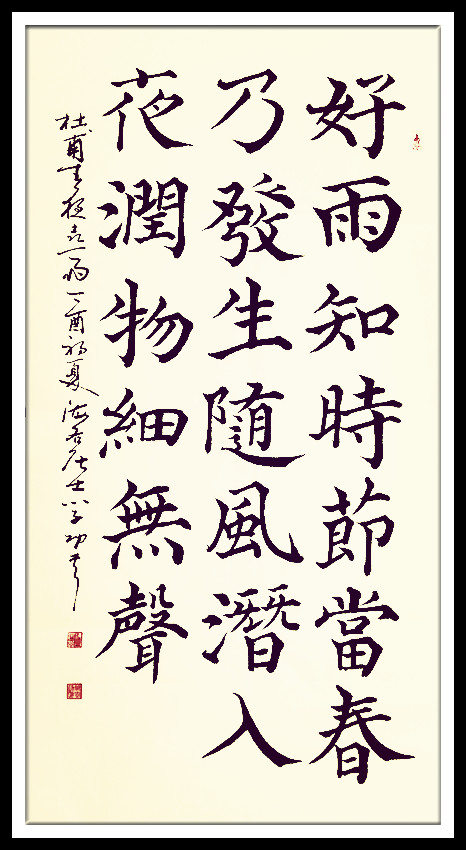 好雨知時節當春
乃發生隨風潛入
夜潤物細無聲
杜甫春夜喜雨丁酉初夏居士